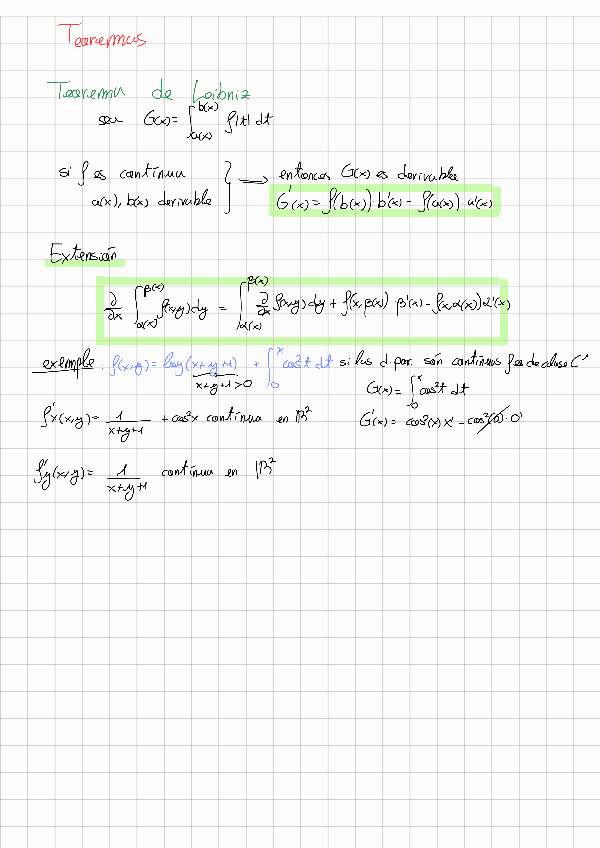 Teoremas
Teorema de Leibniz
sea G(x) = ∫_{a(x)}^{b(x)} f(t) dt
si f es contínua
a(x), b(x) derivable } → entonces G(x) es derivable
G'(x) = f(b(x))·b'(x) - f(a(x))·a'(x)
Extensión
∂/∂x ∫_{α(x)}^{β(x)} f(x,y) dy = ∫_{α(x)}^{β(x)} ∂/∂x f(x,y) dy + f(x,β(x))·β'(x) - f(x,α(x))α'(x)
exemple: f(x,y) = log(x+y+1) + ∫_0^x cos²t dt si las d. par. són contínuas f es de clase C¹
x+y+1>0
G(x) = ∫_0^x cos²t dt
f'x(x,y) = 1/(x+y+1) + cos²x contínua en ℝ²
G'(x) = cos²(x) x' - cos²(0)·0'
f'y(x,y) = 1/(x+y+1) contínua en ℝ²